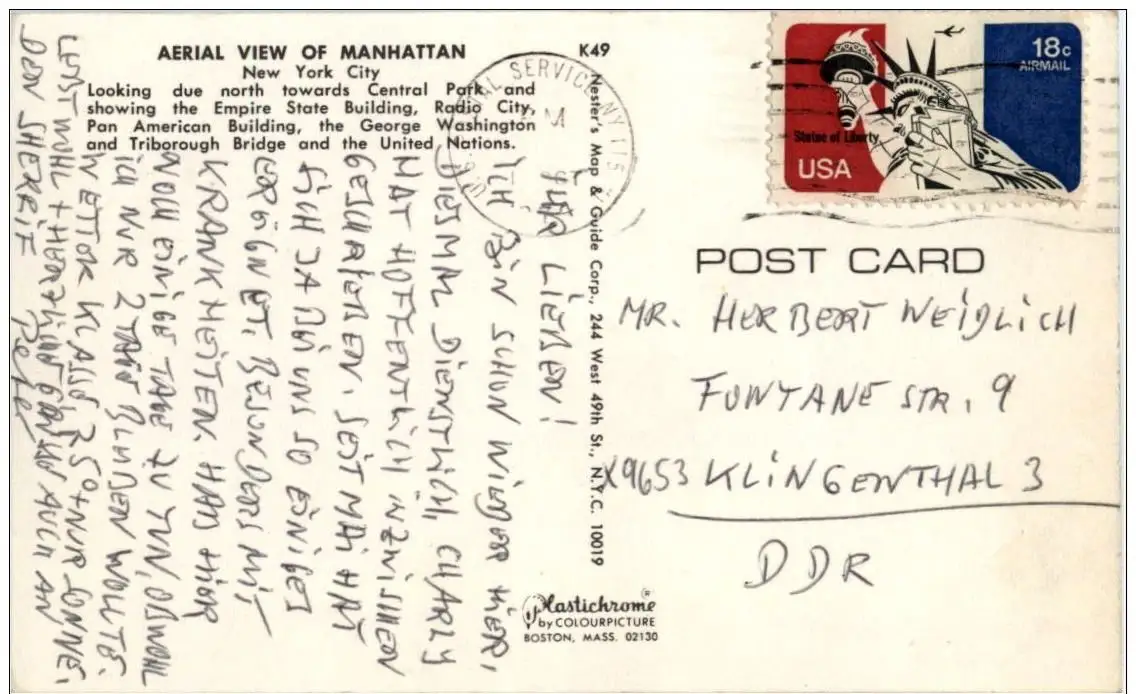 AERIAL VIEW OF MANHATTAN
New York City
Looking due north towards Central Park and
showing the Empire State Building, Radio City,
Pan American Building, the George Washington
and Triborough Bridge and the United Nations.
K49
Nester's Map & Guide Corp., 244 West 49th St., N.Y.C. 10019
IHR LIEBEN!
ICH BIN SCHON WIEDER HIER,
DIESMAL DIENSTLICH. CHARLY
HAT HOFFENTLICH INZWISCHEN
GESCHRIEBEN. SEIT MAI HAT
SICH JA BEI UNS SO EINIGES
EREIGNET, BESONDERS MIT
KRANKHEITEN. HABE HIER
NOCH EINIGE TAGE ZU TUN, OBWOHL
ICH NUR 2 TAGE BLEIBEN WOLLTE.
WETTER KLASSE 25° + NUR SONNE.
LEBT WOHL + HERZLICHE GRÜSSE AUCH AN
DEN SHERIF
POSTAL SERVICE NY 115
18c
AIRMAIL
Statue of Liberty
USA
POST CARD
MR. HERBERT WEIDLICH
FONTANE STR. 9
X9653 KLINGENTHAL 3
DDR
Plastichrome®
by COLOURPICTURE
BOSTON, MASS. 02130